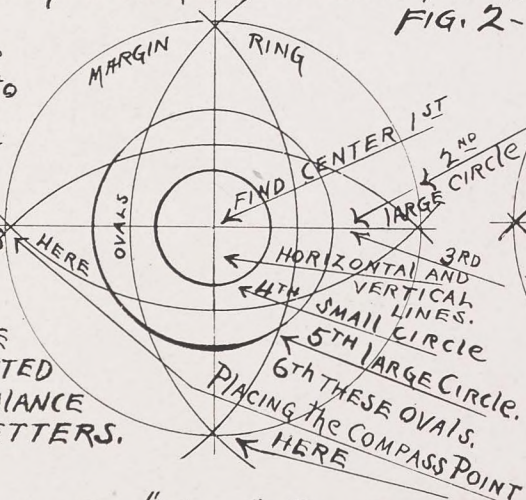 FIG. 2-
MARGIN RING
FIND CENTER 1ST
2ND
LARGE CIRCLE
OVALS
HERE
3RD
HORIZONTAL AND
VERTICAL
LINES.
4TH SMALL CIRCLE
5TH LARGE CIRCLE.
6Th THESE OVALS.
PLACING The COMPASS POINT
HERE
TED
ETTERS.